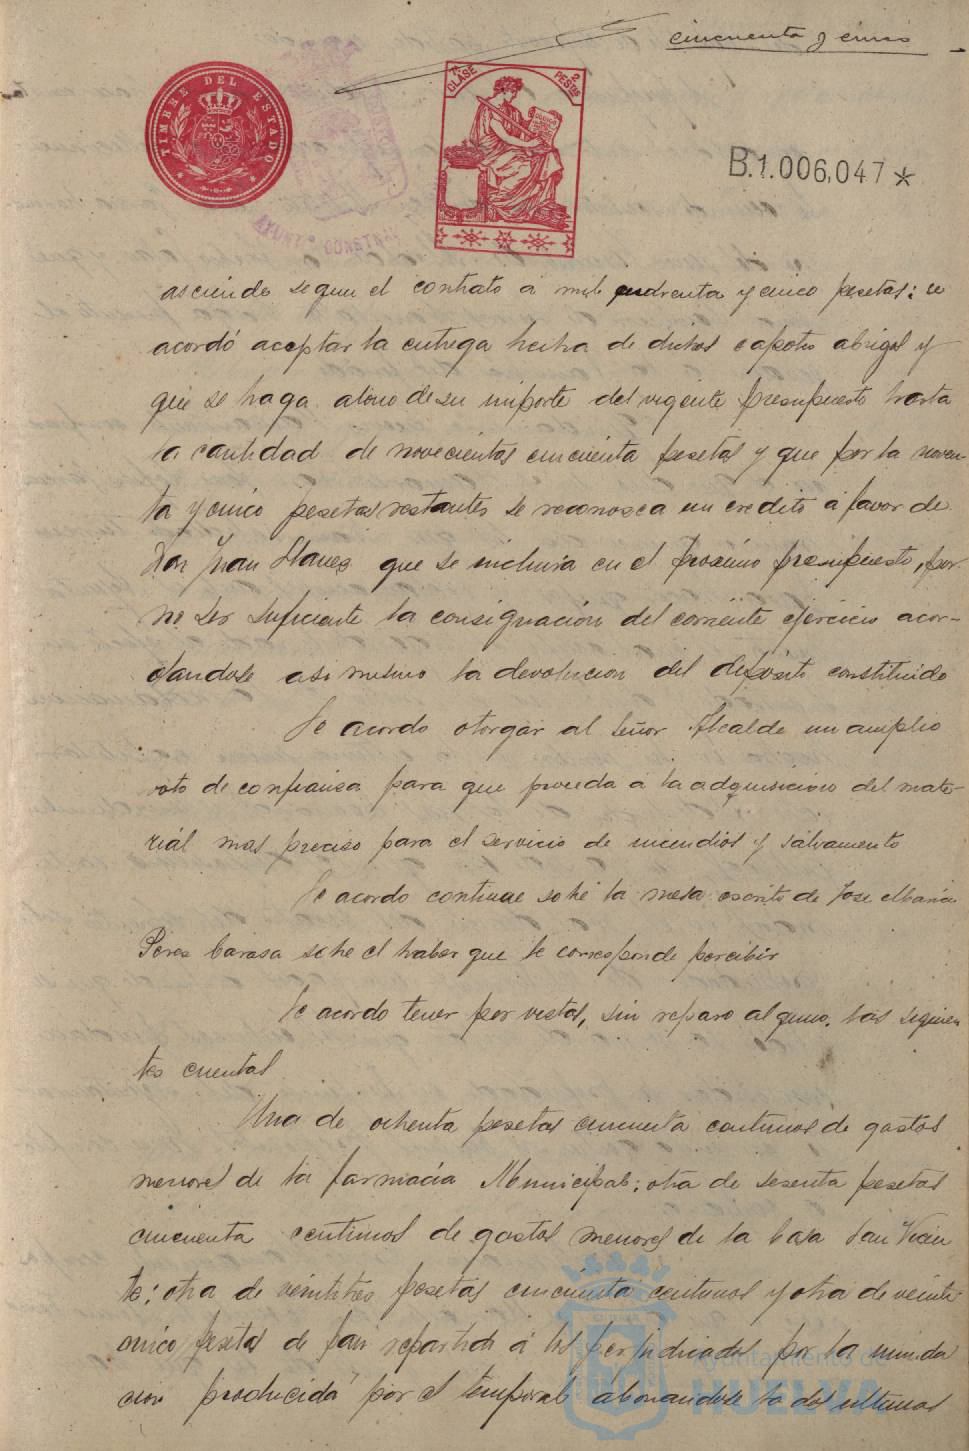 cincuenta y cinco
TIMBRE DEL ESTADO
7ª CLASE 2 PESETAS
B.1.006,047*
AYUNTº CONSTNAL
asciende segun el contrato á mil cuadrenta y cinco pesetas: se
acordó aceptar la entrega hecha de dichos capotes abrigos y
que se haga abono de su importe del vigente presupuesto hasta
la cantidad de novecientas cincuenta pesetas y que por la noven-
ta y cinco pesetas restantes se reconosca un credito á favor de
Don Juan Llanes que se incluirá en el proximo presupuesto, por
no ser suficiente la consignación del corriente ejercicio acor-
dandose asi mismo la devolucion del deposito constituido
Se acordo otorgar al Señor Alcalde un amplio
voto de confiansa para que proceda á la adquisicion del mate-
rial mas preciso para el servicio de incendios y salvamento
Se acordo continue sobre la mesa escrito de Jose Maria
Peres Carasa sobre el haber que le corresponde percibir
Se acordo tener por vistas, sin reparo alguno, las siguien
tes cuentas
Una de ochenta pesetas cincuenta centimos de gastos
menores de la farmacia Municipal: otra de sesenta pesetas
cincuenta centimos de gastos menores de la Casa San Vicen
te: otra de veintitres pesetas cincuenta centimos y otra de veinte
cinco pesetas de pan repartido á los perjudicados por la inunda
cion producida por el temporal abonandose la dos ultimas
Ayuntamiento de
HUELVA